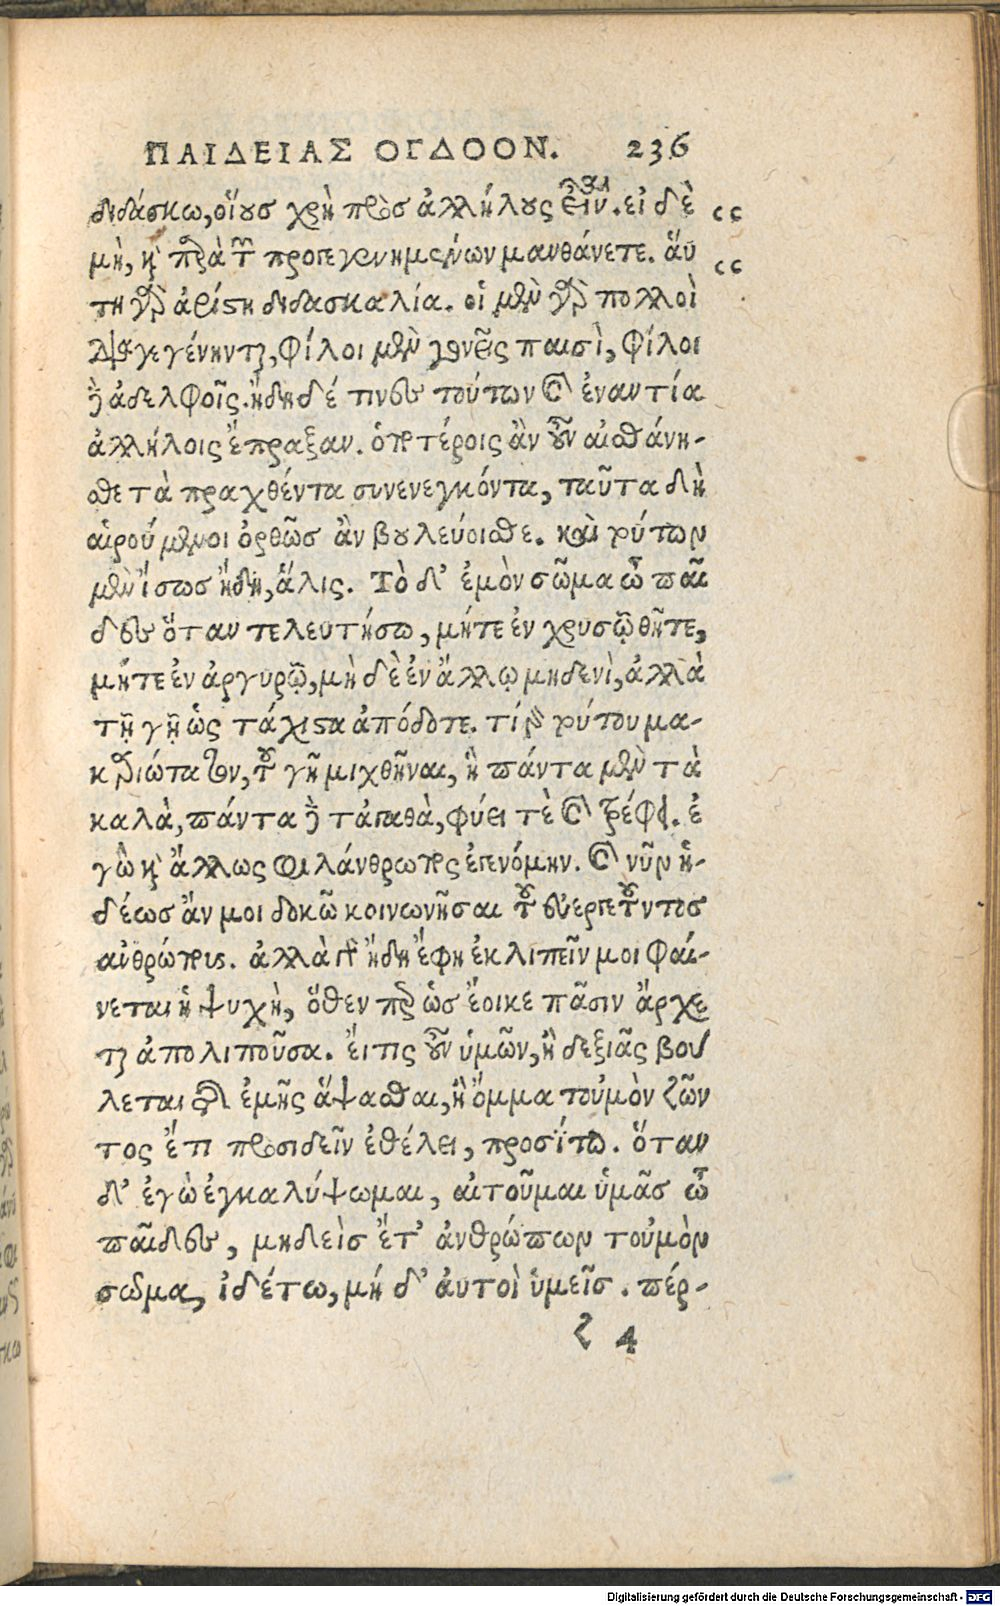 ΠΑΙΔΕΙΑΣ ΟΓΔΟΟΝ. 236
διδάσκω, οἵους χρὴ πρὸς ἀλλήλους εἶναι. εἰ δὲ
μὴ, καὶ παρὰ τῶν προγεγενημένων μανθάνετε. αὕ
τη γὰρ ἀρίστη διδασκαλία. οἱ μὲν γὰρ πολλοὶ
διαγεγένηνται, φίλοι μὲν γονεῖς παισὶ, φίλοι
δὲ ἀδελφοῖς. ἤδη δέ τινες τούτων καὶ ἐναντία
ἀλλήλοις ἔπραξαν. ὁποτέροις ἂν οὖν αἰσθάνη-
σθε τὰ πραχθέντα συνενεγκόντα, ταῦτα δὴ
αἱρούμενοι ὀρθῶς ἂν βουλεύοισθε. καὶ τούτων
μὲν ἴσως ἤδη, ἅλις. Τὸ δ' ἐμὸν σῶμα ὦ παῖ
δες ὅταν τελευτήσω, μήτε ἐν χρυσῷ θῆτε,
μήτε ἐν ἀργυρῷ, μὴ δὲ ἐν ἄλλῳ μηδενὶ, ἀλλὰ
τῇ γῇ ὡς τάχιστα ἀπόδοτε. τί γὰρ τούτου μα-
καριώτατον, τοῦ γῇ μιχθῆναι, ἣ πάντα μὲν τὰ
καλὰ, πάντα δὲ τἀγαθὰ, φύει τὲ καὶ τρέφει. ἐ
γὼ καὶ ἄλλως φιλάνθρωπος ἐγενόμην. καὶ νῦν ἡ-
δέως ἄν μοι δοκῶ κοινωνῆσαι τοῦ εὐεργετοῦντος
ἀνθρώπους. ἀλλὰ γὰρ ἤδη ἔφη ἐκλιπεῖν μοι φαί-
νεται ἡ ψυχὴ, ὅθεν περ ὡς ἔοικε πᾶσιν ἄρχε
ται ἀπολιποῦσα. εἴ τις οὖν ὑμῶν, ἢ δεξιᾶς βού
λεται τῆς ἐμῆς ἅψασθαι, ἢ ὄμμα τοὐμὸν ζῶν
τος ἔτι προσιδεῖν ἐθέλει, προσίτω. ὅταν
δ' ἐγὼ ἐγκαλύψωμαι, αἰτοῦμαι ὑμᾶς ὦ
παῖδες, μηδεὶς ἔτ' ἀνθρώπων τοὐμὸν
σῶμα, ἰδέτω, μή δ' αὐτοὶ ὑμεῖς. πέρ-
ζ 4
Digitalisierung gefördert durch die Deutsche Forschungsgemeinschaft - DFG